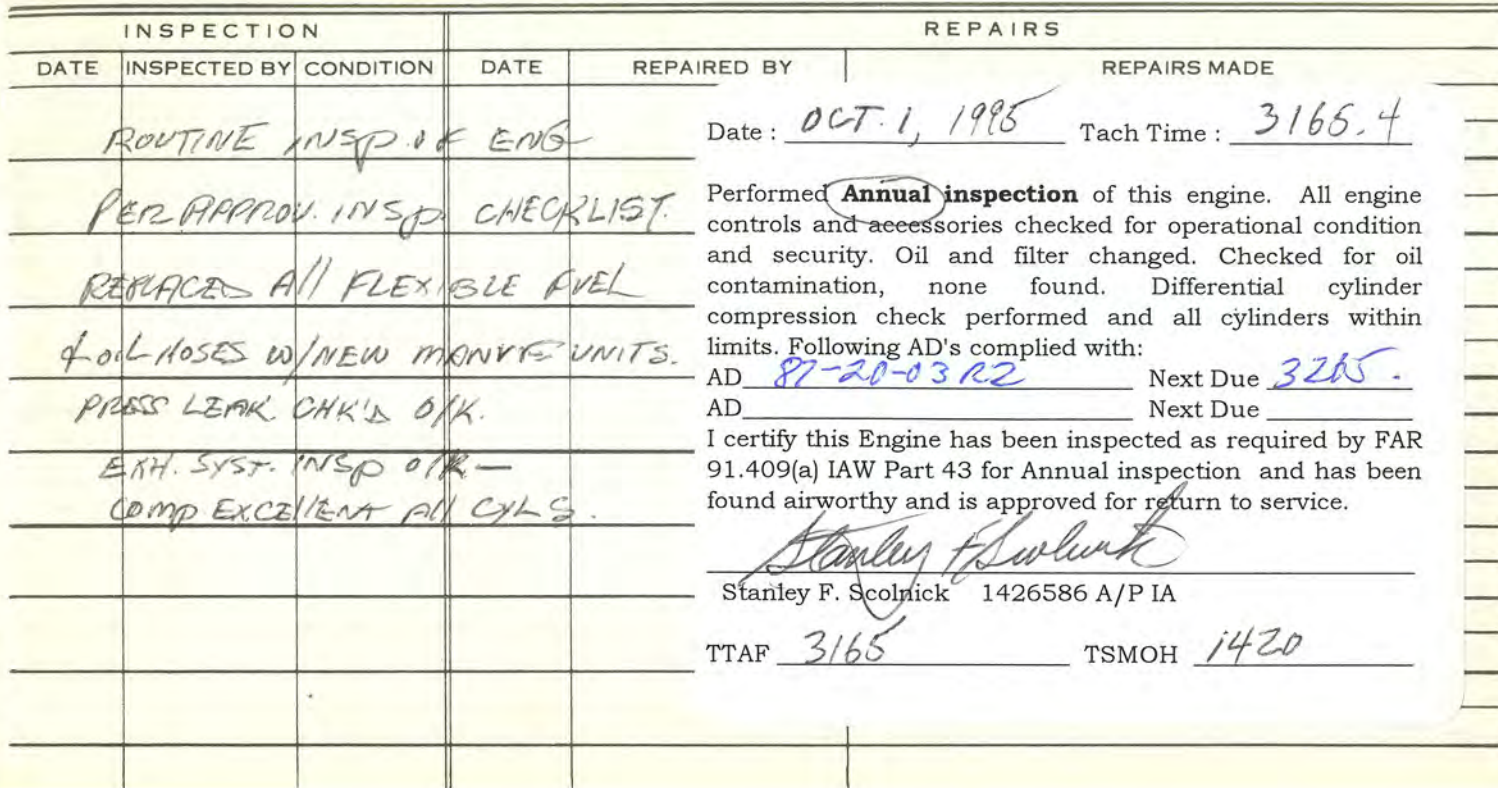 INSPECTION
REPAIRS
DATE INSPECTED BY CONDITION DATE REPAIRED BY REPAIRS MADE
ROUTINE INSP. OF ENG
PER APPROV. INSP. CHECKLIST.
REPLACED All FLEXIBLE FUEL
& OIL HOSES W/NEW UNITS.
PRESS LEAK. CHK'D O/K.
EXH. SYST. INSP O/K —
COMP EXCEllENT All CYLS.
Date : OCT. 1, 1995 Tach Time : 3165.4
Performed Annual inspection of this engine. All engine
controls and accessories checked for operational condition
and security. Oil and filter changed. Checked for oil
contamination, none found. Differential cylinder
compression check performed and all cylinders within
limits. Following AD's complied with:
AD 87-20-03 R2 Next Due 3265.
AD Next Due
I certify this Engine has been inspected as required by FAR
91.409(a) IAW Part 43 for Annual inspection and has been
found airworthy and is approved for return to service.
Stanley F. Scolnick
Stanley F. Scolnick 1426586 A/P IA
TTAF 3165 TSMOH 1420